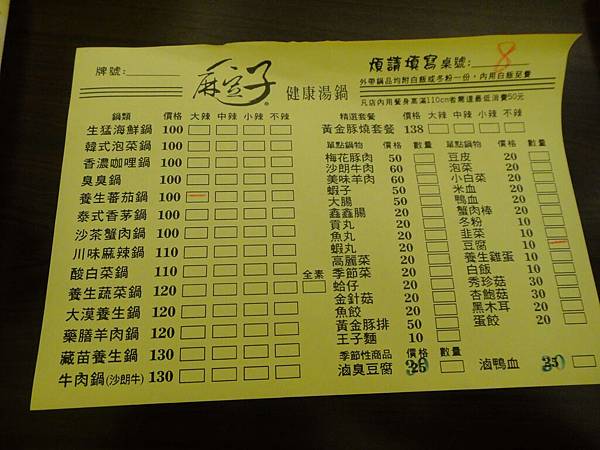 牌號:
麻豆子 健康湯鍋
煩請填寫桌號: 8
外帶鍋品均附白飯或冬粉一份,內用白飯免費
凡店內用餐身高滿110cm者需達最低消費50元
鍋類 價格 大辣 中辣 小辣 不辣
生猛海鮮鍋 100
韓式泡菜鍋 100
香濃咖哩鍋 100
臭臭鍋 100
養生蕃茄鍋 100
泰式香茅鍋 100
沙茶蟹肉鍋 100
川味麻辣鍋 110
酸白菜鍋 110
全素
養生蔬菜鍋 120
大漠養生鍋 120
藥膳羊肉鍋 120
藏苗養生鍋 130
牛肉鍋(沙朗牛) 130
精選套餐 價格 大辣 中辣 小辣 不辣
黃金豚燒套餐 138
單點鍋物 價格 數量
梅花豚肉 50
沙朗牛肉 60
美味羊肉 60
蝦子 50
大腸 50
鑫鑫腸 20
貢丸 20
魚丸 20
蝦丸 20
高麗菜 20
季節菜 20
蛤仔 20
金針菇 20
魚餃 20
黃金豚排 50
王子麵 10
單點鍋物 價格 數量
豆皮 20
泡菜 20
小白菜 20
米血 20
鴨血 20
蟹肉棒 20
冬粉 10
韭菜 20
豆腐 10
養生雞蛋 10
白飯 10
秀珍菇 30
杏鮑菇 30
黑木耳 20
蛋餃 20
季節性商品 價格 數量
滷臭豆腐 30 滷鴨血 30